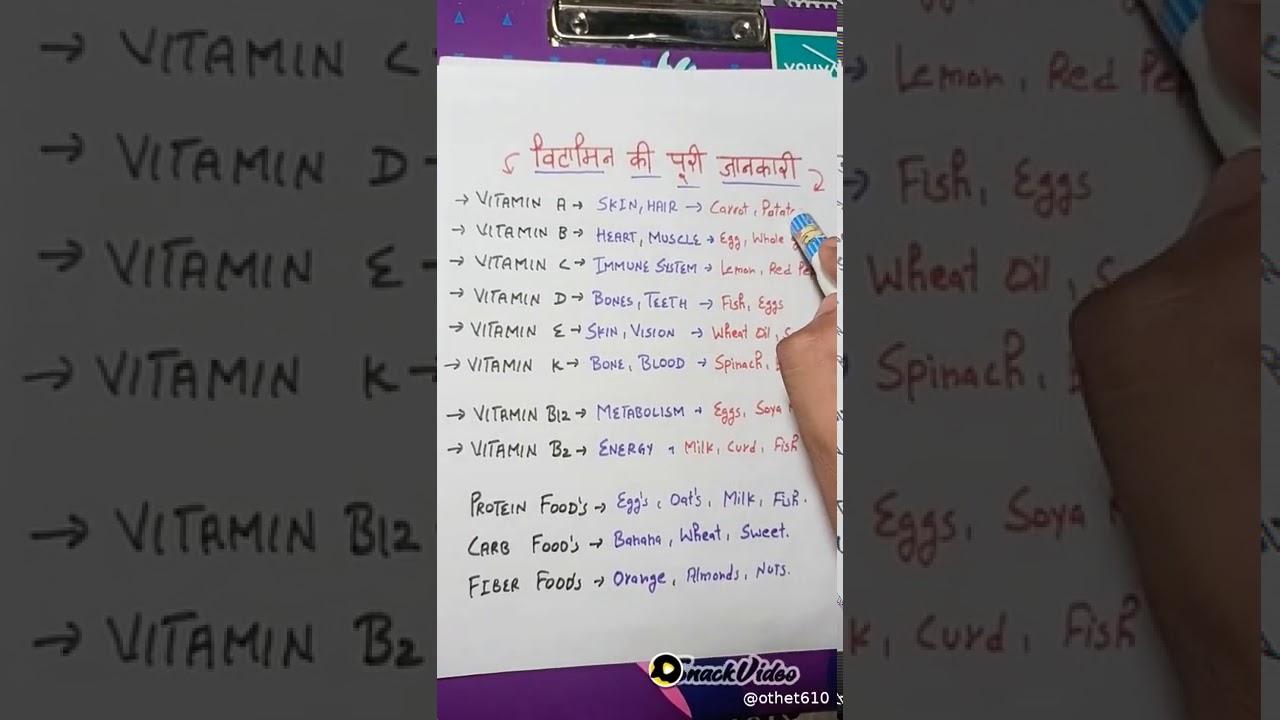 विटामिन की पूरी जानकारी
→ VITAMIN A → SKIN, HAIR → Carrot, Potato
→ VITAMIN B → HEART, MUSCLE → Egg, Whole
→ VITAMIN C → IMMUNE SYSTEM → Lemon, Red
→ VITAMIN D → BONES, TEETH → Fish, Eggs
→ VITAMIN E → SKIN, VISION → Wheat Oil,
→ VITAMIN K → BONE, BLOOD → Spinach,
→ VITAMIN B12 → METABOLISM → Eggs, Soya
→ VITAMIN B2 → ENERGY → Milk, Curd, Fish
PROTEIN FOOD'S → Egg's, Oat's, Milk, Fish.
CARB FOOD'S → Banana, Wheat, Sweet.
FIBER FOODS → Orange, Almonds, Nuts.
SnackVideo
@othet610